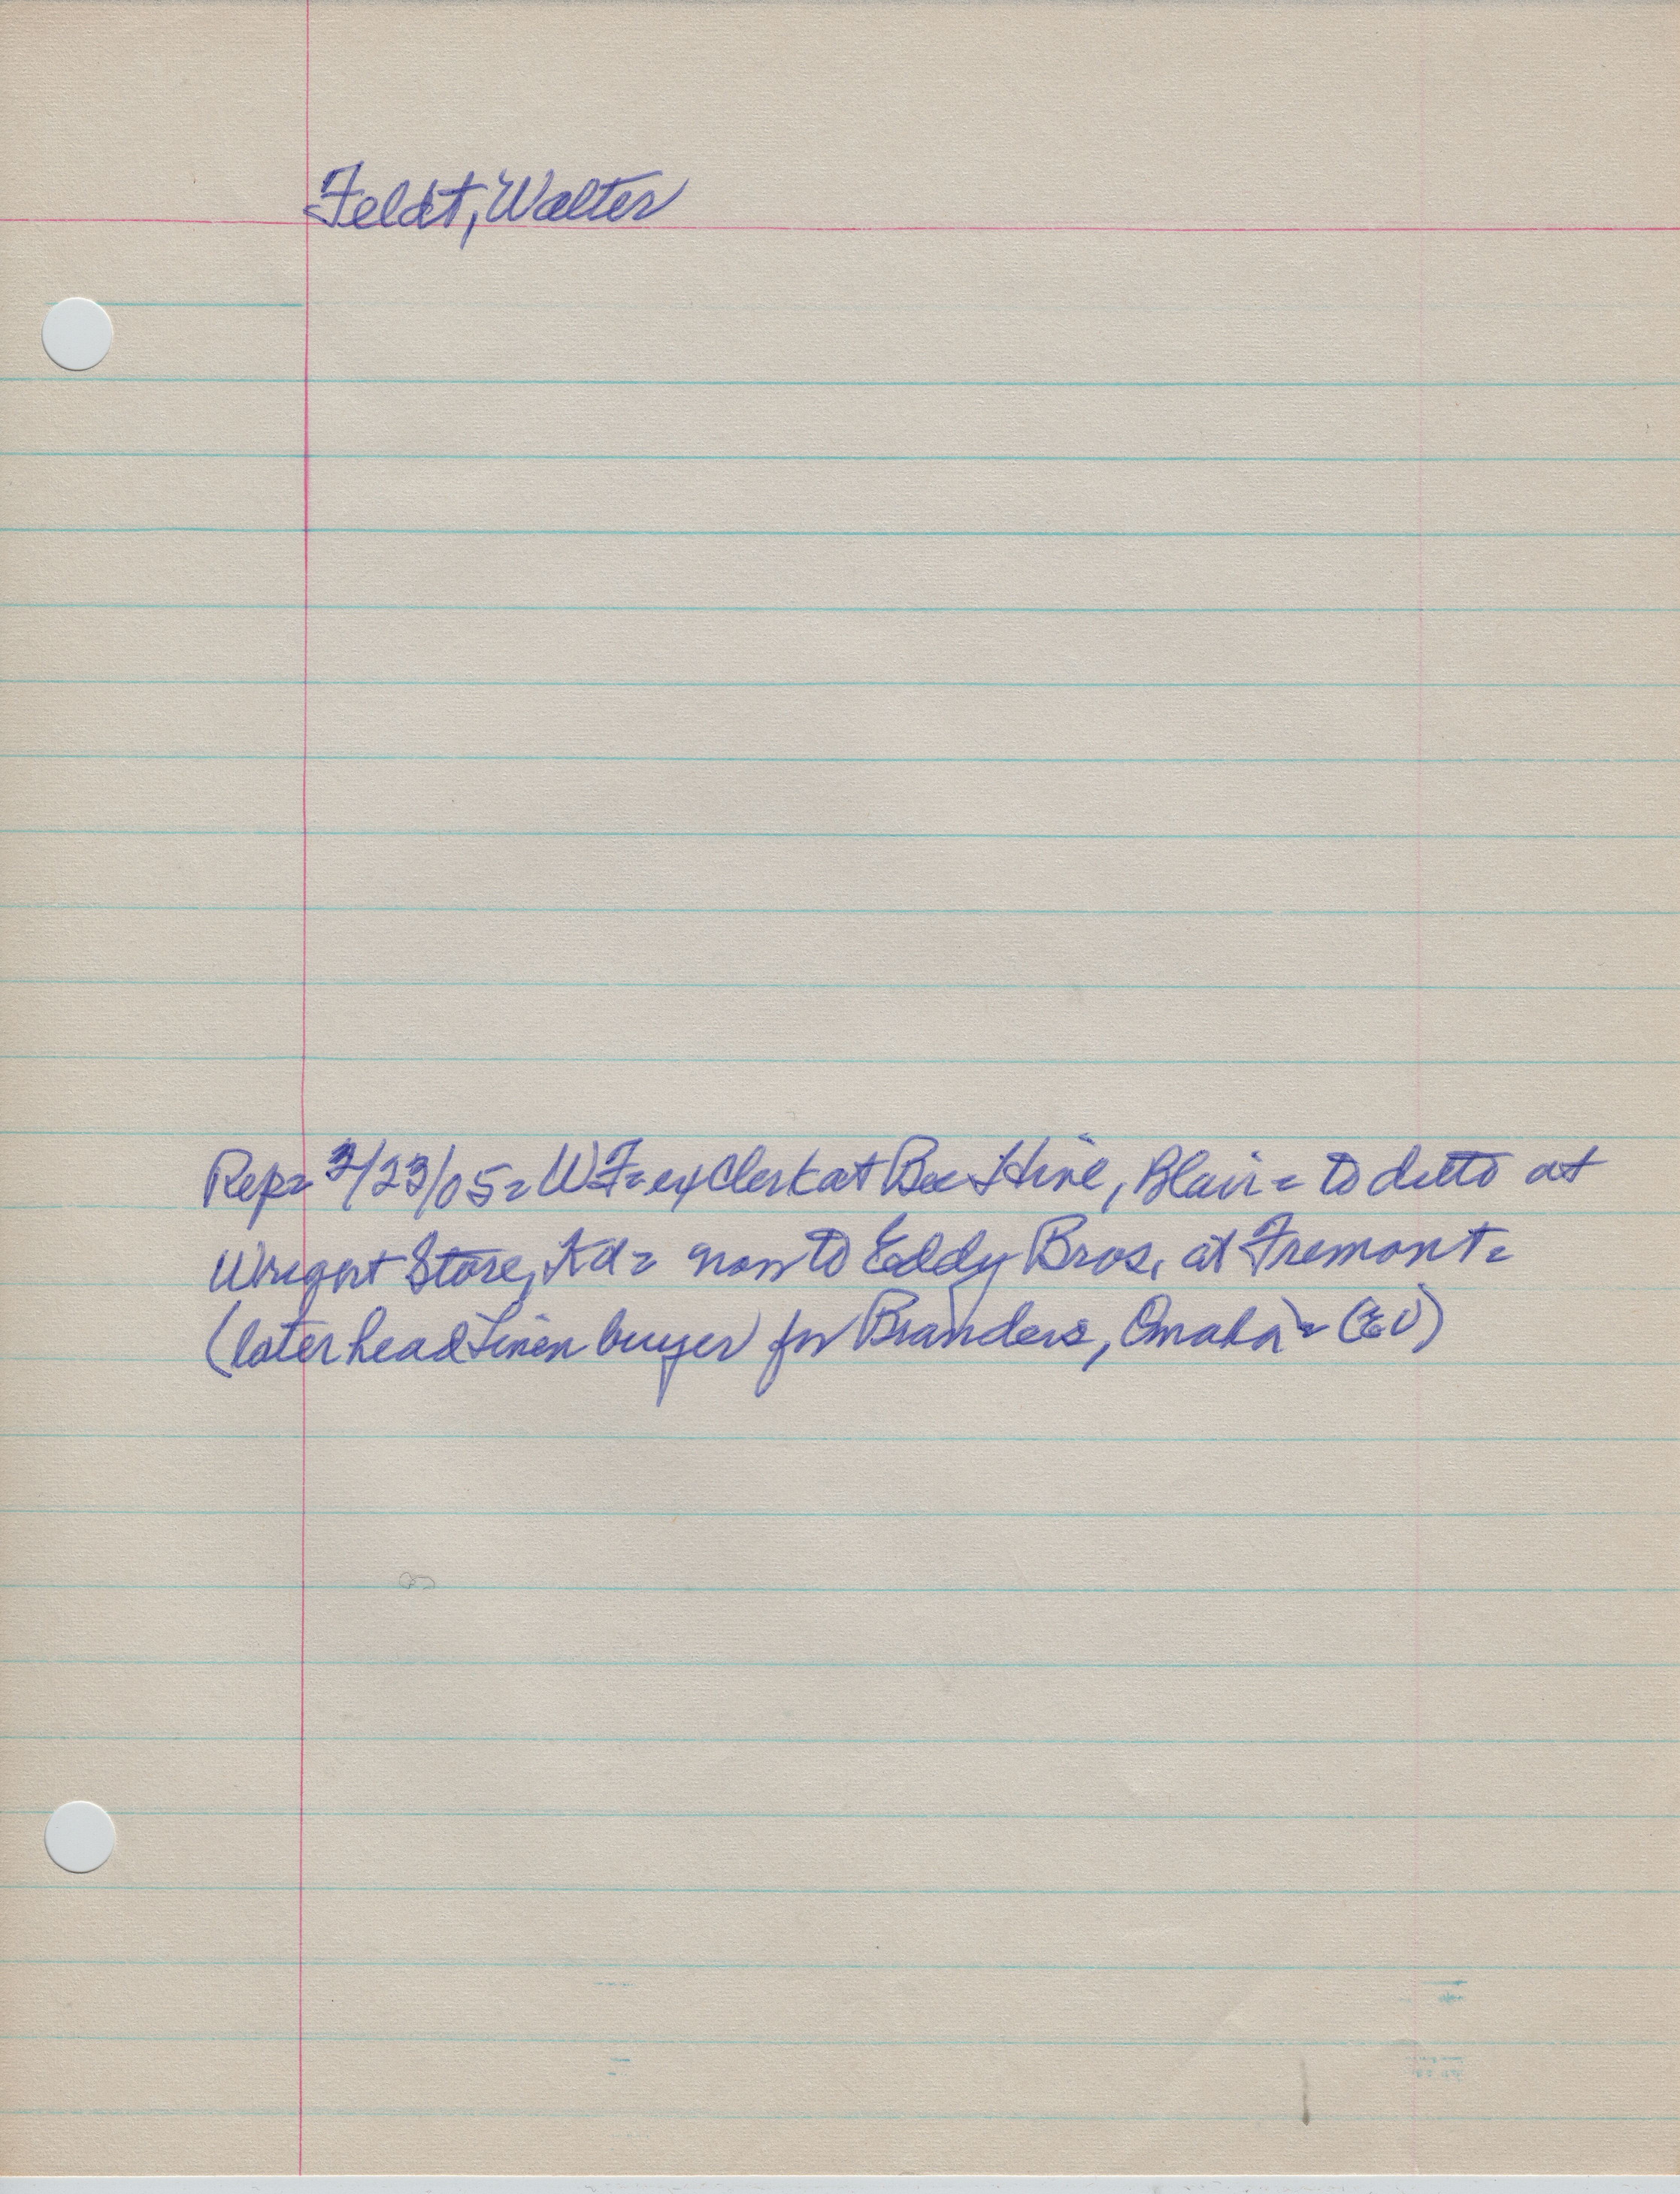 Feldt, Walter
Rep= 3/23/05= WF= ex Clerk at Bee Hive, Blair= to ditto at
Store, Kd= now to Eddy Bros. at Fremont=
(later head Linen buyer for Brandeis, Omaha)= (EU)